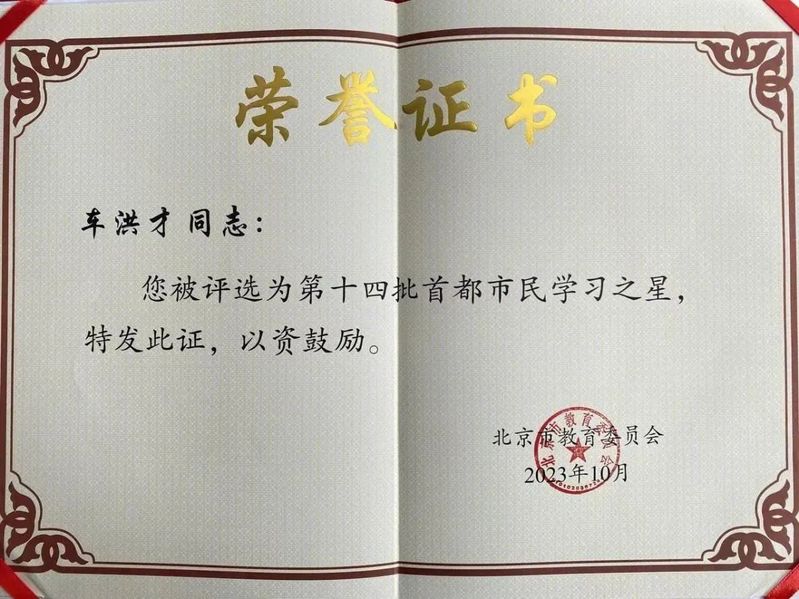 荣誉证书
车洪才 同志：
您被评选为第十四批首都市民学习之星，
特发此证，以资鼓励。
北京市教育委员会
2023年10月
北京市教育委员会